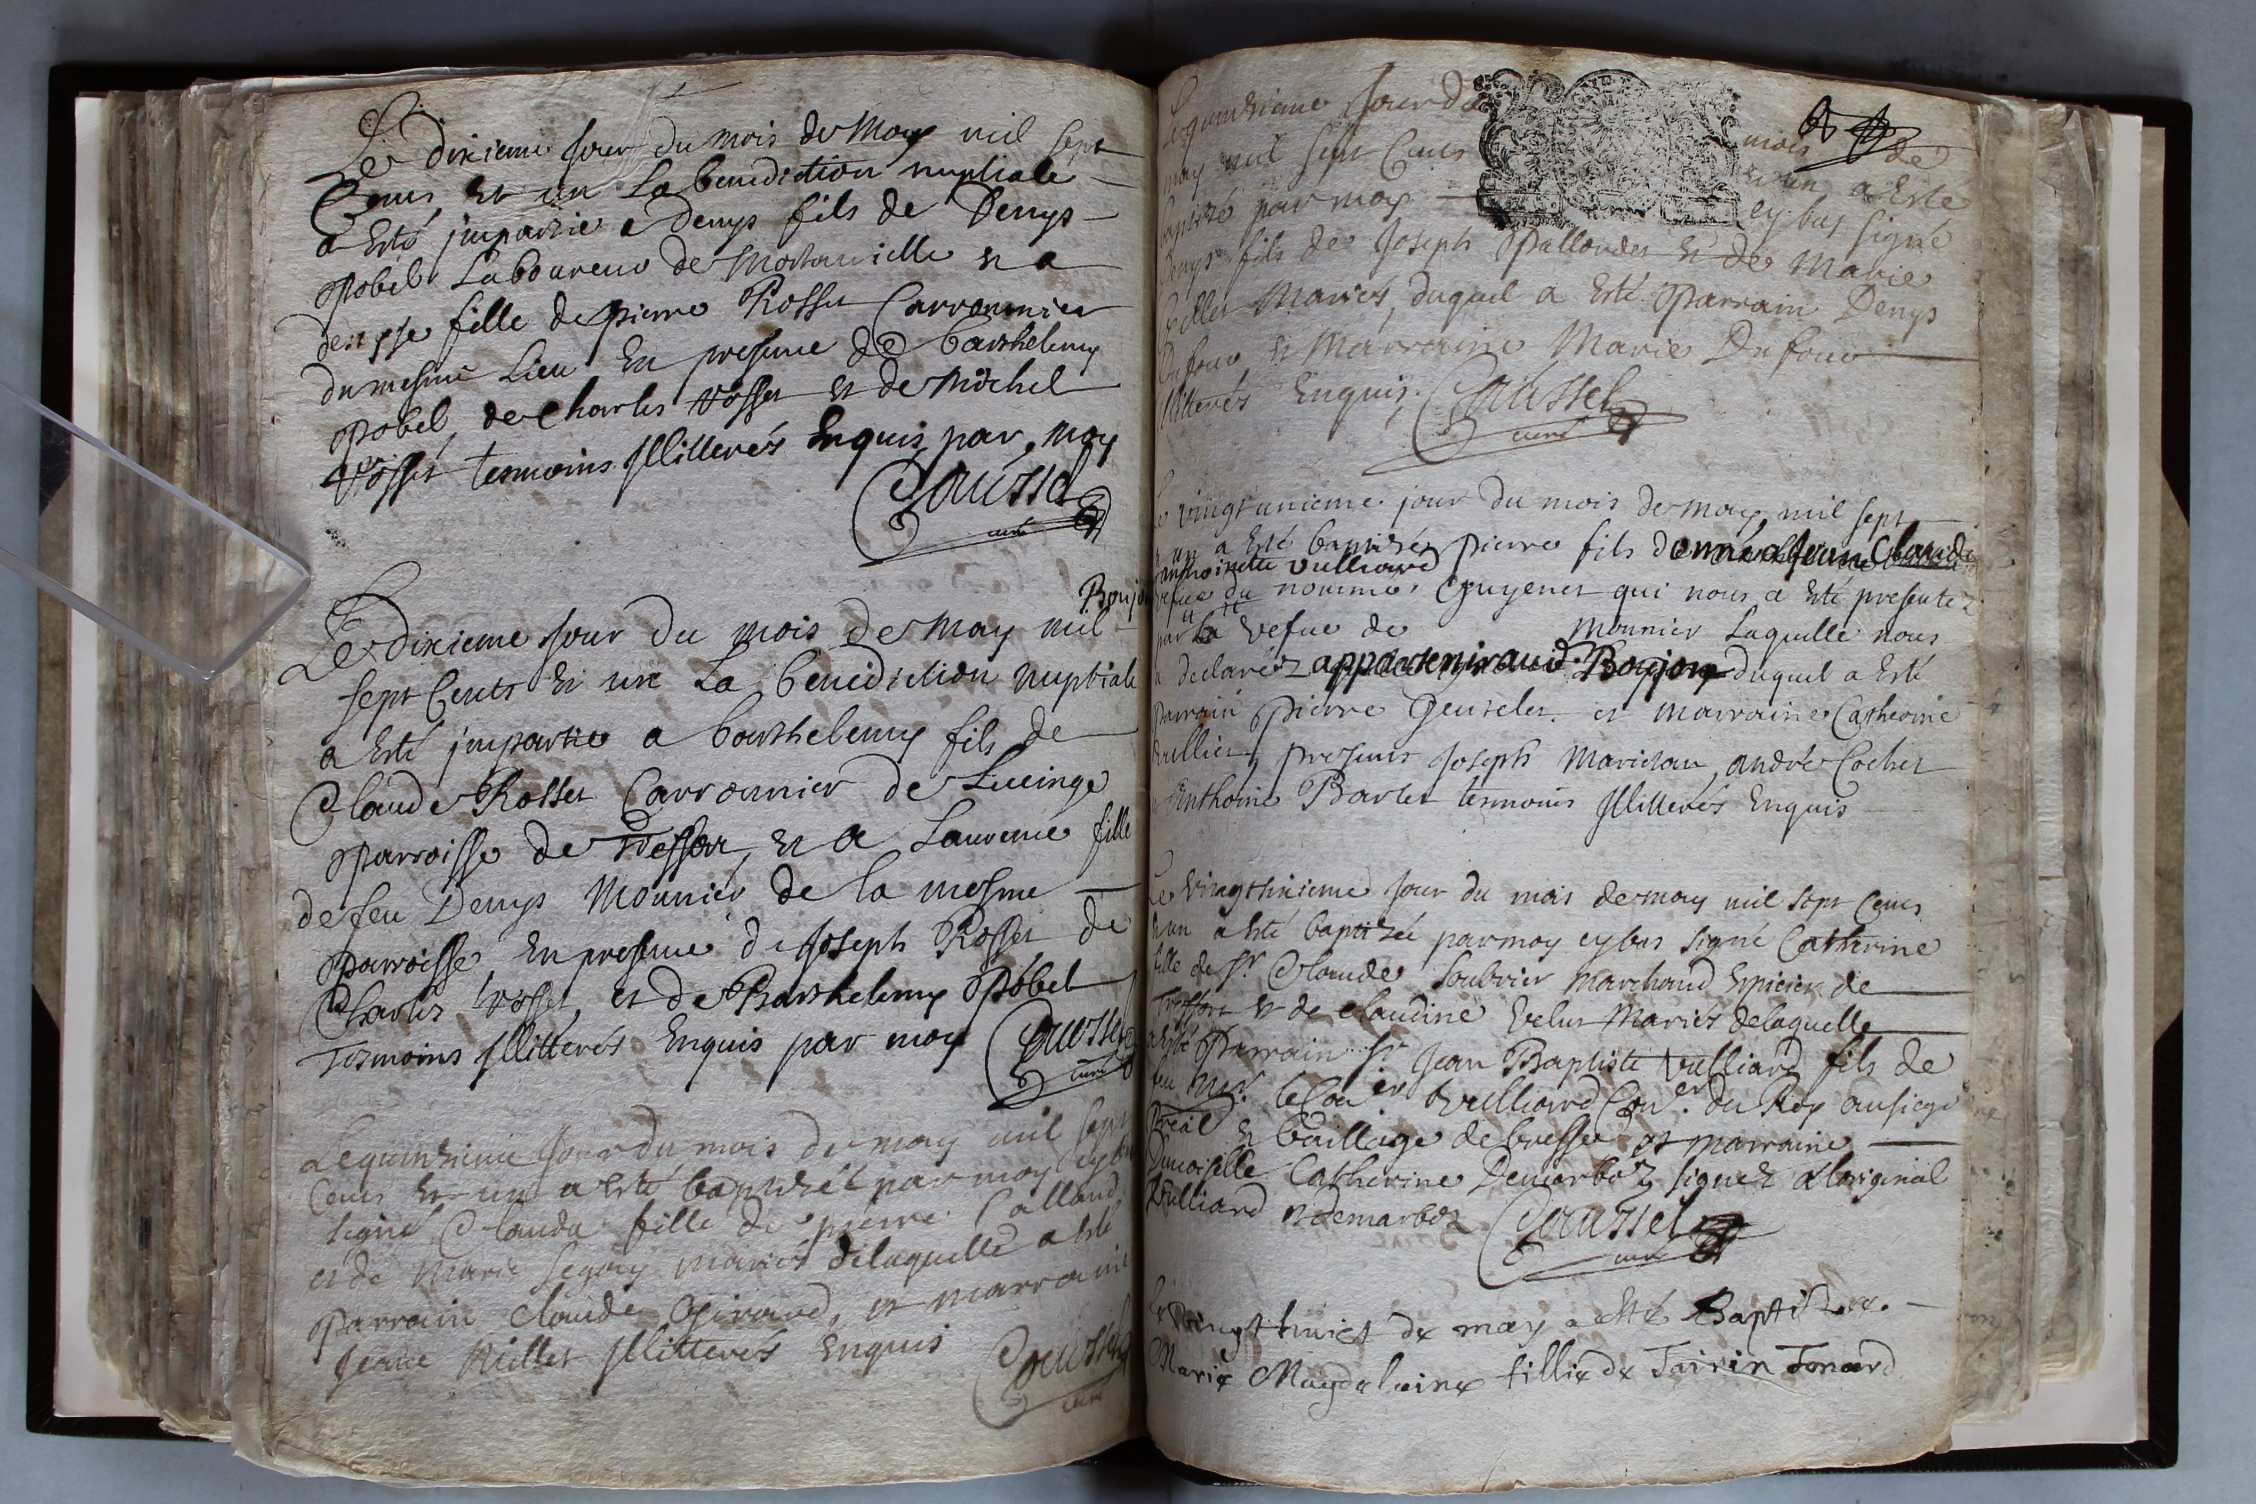 Le dixieme jour du mois de May mil sept
Cens et un La benediction nuptiale
a Esté jmpartie a Denys fils de Denys
Pobel Laboureur de et a
denyse fille de pierre Rosset Carronnier
du mesme Lieu En presence de barthelemy
Pobel de Charles Vosset et de Michel
Vosset tesmoins Illitterés Enquis par moy
Goussel
curé
Boujon
Le dixieme Jour du mois de May mil
sept Cents et un La benediction nuptiale
a Esté jmpartie a barthelemy fils de
Claude Rosset Carronnier de Lucinge
Parroisse de Treffort, et a Laurence fille
de feu Denys Monnier de la mesme
Parroisse En presence de Joseph Rosset de
Charles Vosset, et de Barthelemy Pobel
Tesmoins Illitterés Enquis par moy Goussel
curé
Le quinzieme Jour du mois de may mil sept
Cens et un a esté baptizée par moy cybas
signé Clauda fille de pierre
et de Marie mariés de laquelle a esté
Parrain Claude Girard, et marraine
Jeanne Millet Illitterés Enquis Goussel
curé
Le quinzieme Jour du mois de
may mil sept Cens et un a Esté
baptizé par moy cy bas signé
Denys fils de Joseph et de Marie
Millet Mariés, duquel a Esté Parrain Denys
Dufour et Marraine Marie Dufour
Illitterés Enquis. Goussel
curé
Le vingtunieme jour du mois de may, mil sept
un a Esté baptizé pierre fils donné a Jean Claude
anthoinette Vulliard
vefue du nommé Guyenet qui nous a esté presentez
par la vefue de Monnier Laquelle nous
a declaréz appartenir aud. Boujon duquel a Esté
parrain Pierre et marraine Catherine
Vullier, presens Joseph Maridan, andre Cochet
Anthoine Barlet tesmoins Illitterés Enquis
Le vingthuicieme Jour du mois de may mil sept Cens
et un a esté baptizée par moy cybas signé Catherine
fille de Sr Claude Soubrier Marchand Epicier de
Treffort et de claudine Velut Mariés de laquelle
a esté Parrain Sr Jean Baptiste Vulliard fils de
feu Mr. le Conr Vulliard Conr. du Roy au siege
Preal et bailliage de bresse et marraine
Damoiselle Catherine Demarboz signez a Loriginal
Vulliard et Demarboz Goussel
curé
Le Vingt huict de may a esté Baptizee
Marie Magdeleine fillie de Tonard